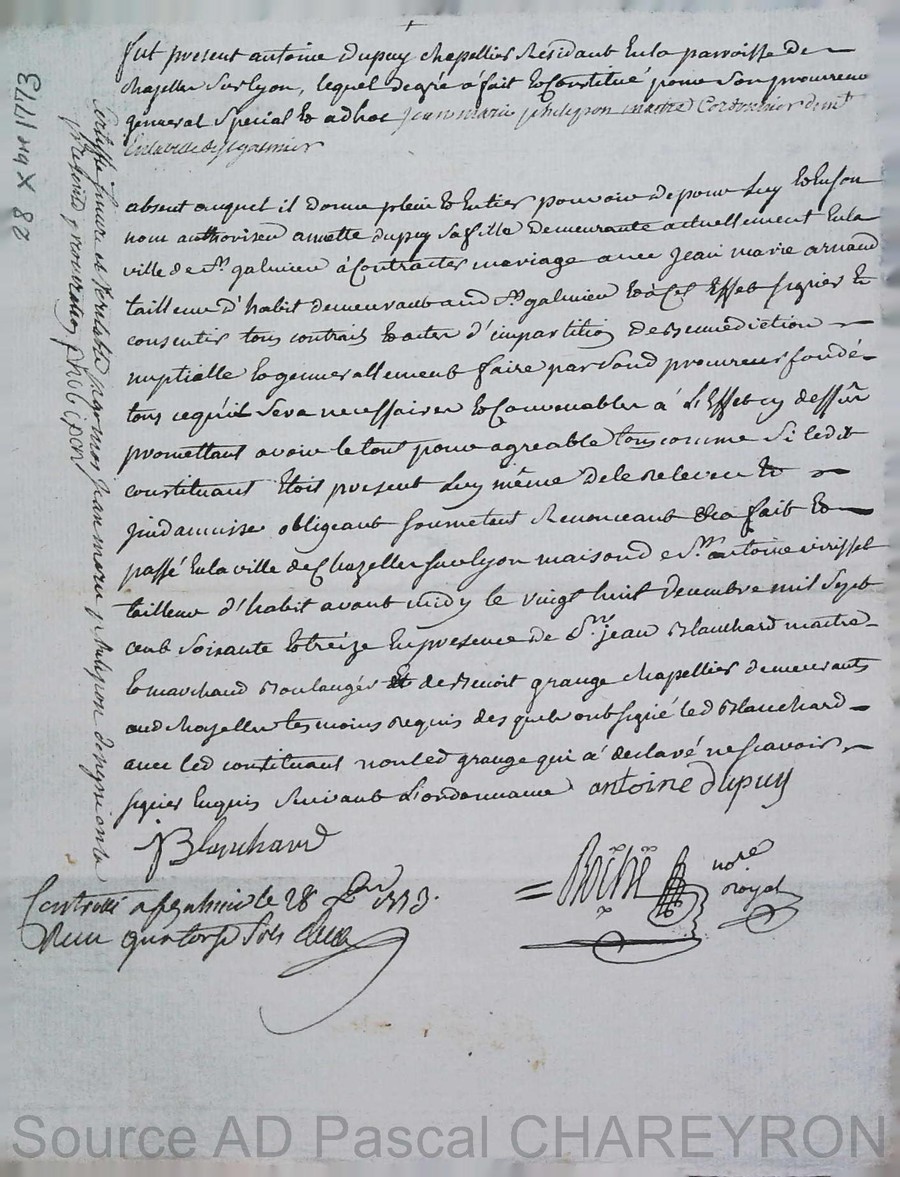 fut present antoine Dupuy chapellier Residant En la parroisse de
chazelles Sur Lyon, lequel de gré a fait et Constitué pour Son procureur
general Special et ad hoc Jean marie philipon maitre Cordonnier demt
En la ville de st galmier
absent auquel il donne plein et Entier pouvoir de pour Luy et En Son
nom authoriser annette dupuy Sa fille demeurante actuellement En la
ville de st galmier à Contracter mariage avec Jean marie arnaud
tailleur d'habit demeurant aud st galmier et à Cet Effet signer et
consentir tous contrats et actes d'impartition de Benediction
nuptialle et generallement faire par Sond procureur fondé
tous ce qu'il Sera necessaires et Convenables à L'Effet cy dessûs
promettant avoir le tout pour agreable tous comme Si ledit
constituant Etoit present Luy même de le Relever et
jindamniser obligeant Soumetant Renonceant &a fait et
passé En la ville de Chazelles Sur Lyon maison de Sr antoine
tailleur d'habit avant midy le vingt huit decembre mil Sept
cent Soixante et treize En presence de Sr jean Blanchard maitre
et marchand Boulanger et de Benoit grange chapellier demeurants
aud chazelles temoins Requis desquels ont signé led Blanchard
avec led constituant non led grange qui a declaré ne scavoir
signer Enquis Suivant L'ordonnance antoine dupuy
JBlanchard
nore
Royal
Controllé a st galmier le 28 Xbre 1773.
Recu quatorze Sols
Certiffié Sincere et veritable par moy Jean marie philipon
philipon
28 Xbre 1773
Source AD Pascal CHAREYRON